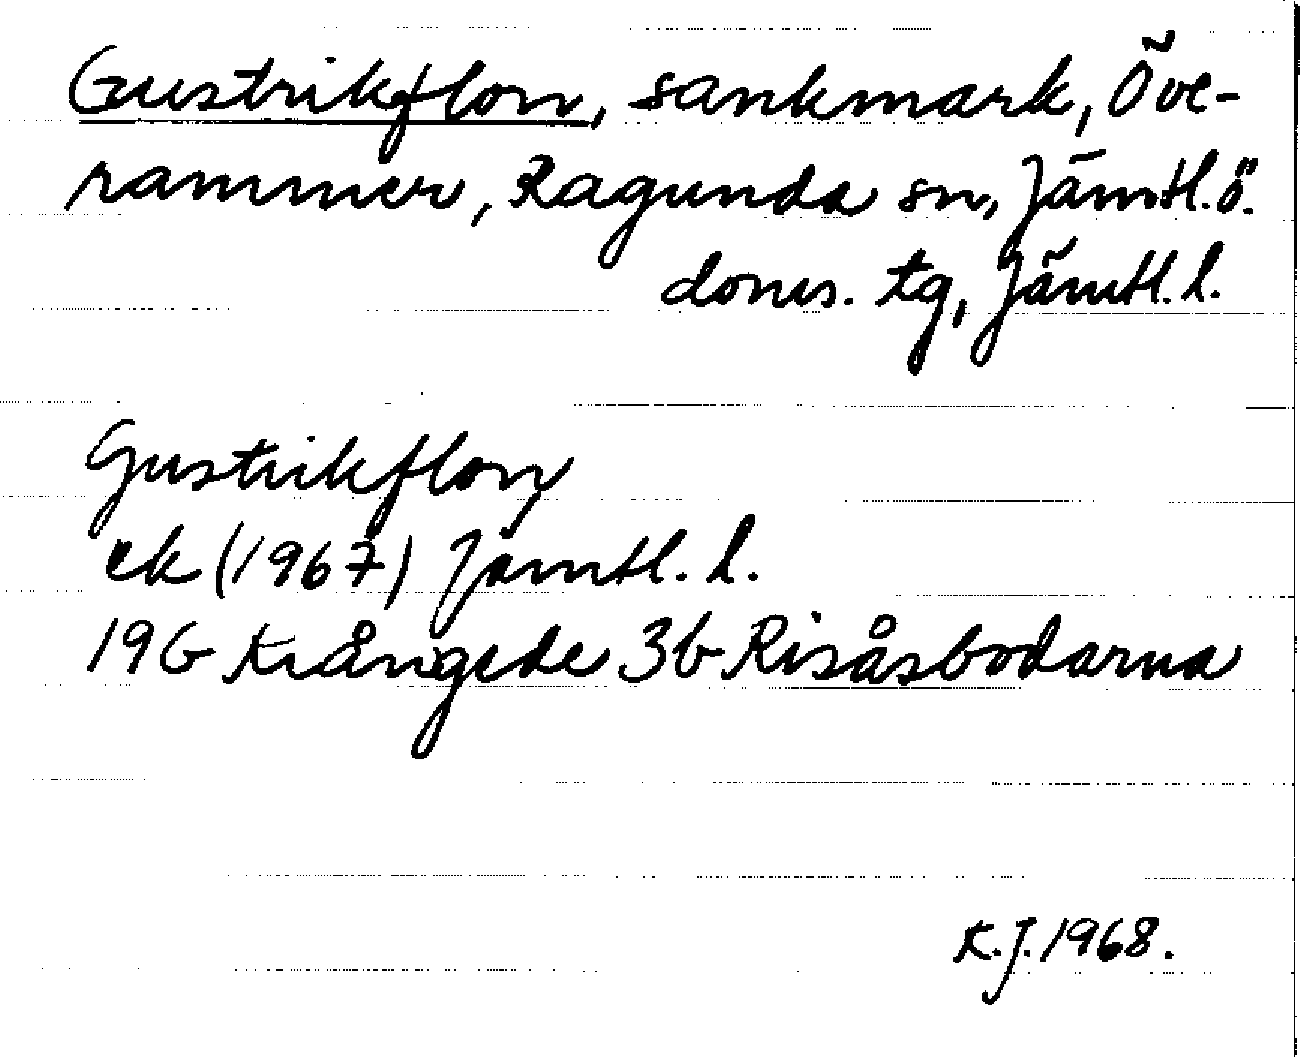 Gustrikflon, sankmark, Öve-
rammer, Ragunda sn, Jämtl.ö.
doms. tg, Jämtl. l.
Gustrikflon
ek (1967) Jämtl. l.
19G Krångede 3b Risåsbodarna
K.J. 1968.